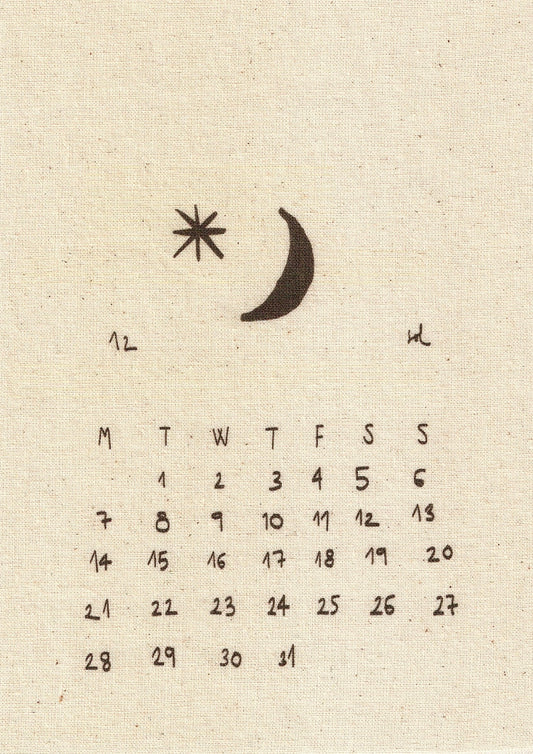 12 sol
M T W T F S S
1 2 3 4 5 6
7 8 9 10 11 12 13
14 15 16 17 18 19 20
21 22 23 24 25 26 27
28 29 30 31